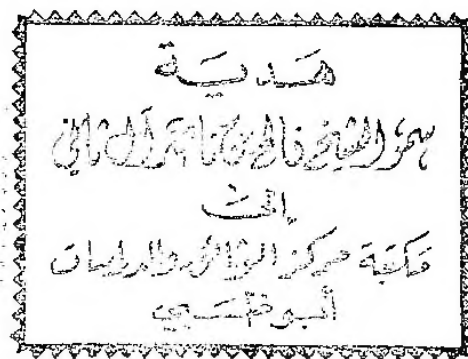 هَديَة
سمو الشيخ فالح بن ناصر آل ثاني
إلى
مكتبة مركز الوثائق والدراسات
أبو ظَبي